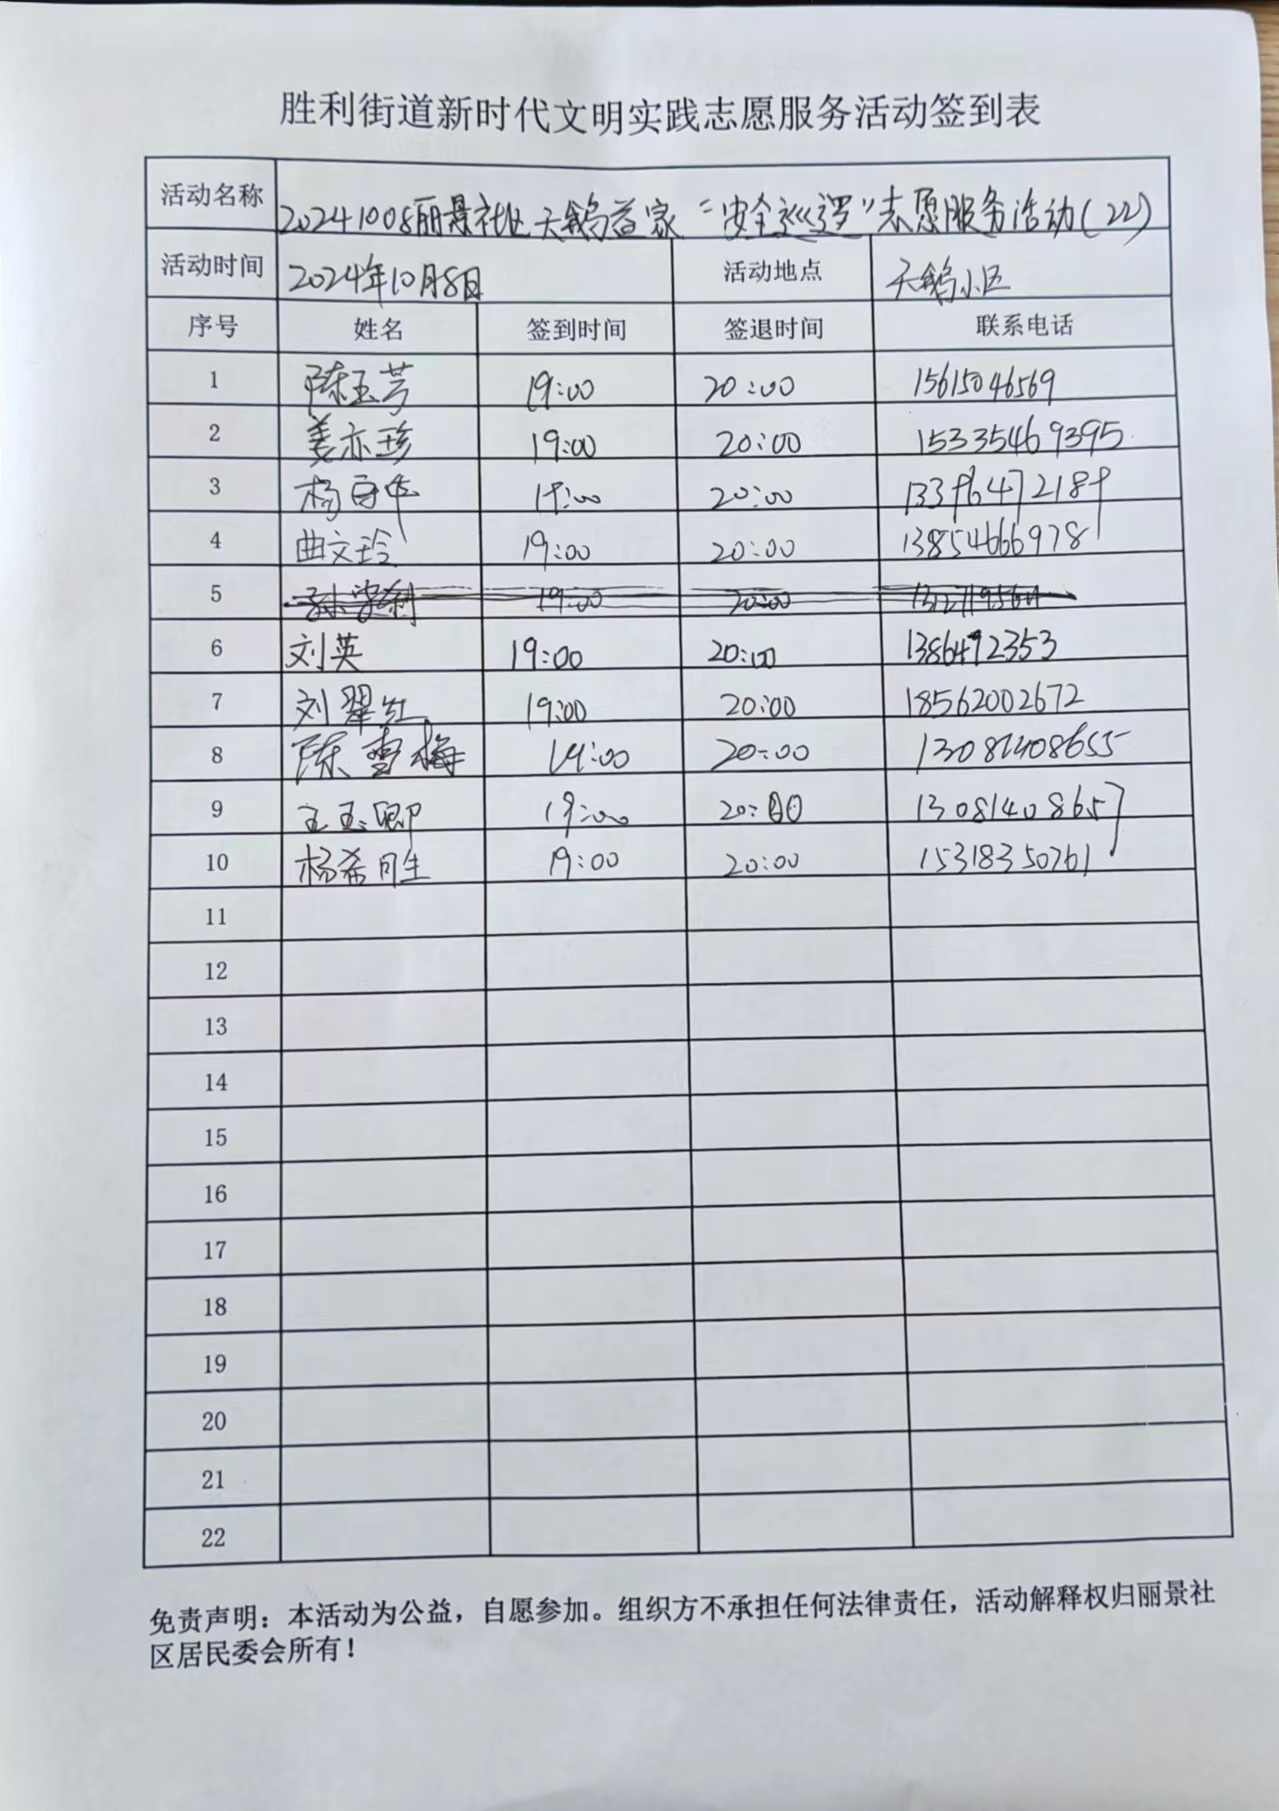 胜利街道新时代文明实践志愿服务活动签到表
活动名称 20241008丽景社区天鹅益家“安全巡逻”志愿服务活动(22)
活动时间 2024年10月8日 活动地点 天鹅小区
序号 姓名 签到时间 签退时间 联系电话
1 陈玉芳 19:00 20:00 15615046569
2 姜亦珍 19:00 20:00 15335469395
3 杨百华 19:00 20:00 13396472189
4 曲文玲 19:00 20:00 13854666978
5 19:00 20:00
6 刘英 19:00 20:00 1386492353
7 刘翠红 19:00 20:00 18562002672
8 陈雪梅 19:00 20:00 13081408655
9 王玉卿 19:00 20:00 13081408657
10 杨希胜 19:00 20:00 15318350761
11
12
13
14
15
16
17
18
19
20
21
22
免责声明：本活动为公益，自愿参加。组织方不承担任何法律责任，活动解释权归丽景社
区居民委会所有！